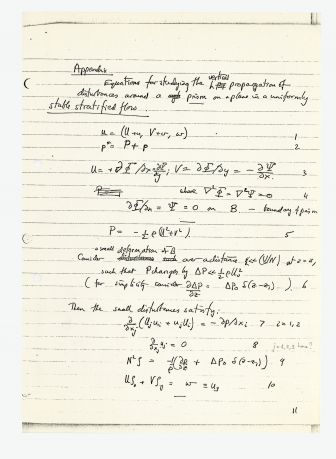 Appendix
Equations for studying the vertical propagation of
disturbances around a prism on a plane in a uniformly
stable stratified flow.
u = (U+u, V+v, w) 1
p* = P + p 2
U = + ∂Φ/∂x = ∂Ψ/∂y ; V = ∂Φ/∂y = - ∂Ψ/∂x 3
where ∇²Φ = ∇²Ψ = 0 4
∂Φ/∂n = Ψ = 0 on B - boundary of prism
P = - ½ ρ (U²+V²) 5
small deformation
Consider over a distance (U/N) at z = z,
such that P changes by ΔP << ½ρU₀²
(for simplicity consider ∂ΔP/∂z = ΔP₀ δ(z-z₁) ) 6
Then the small disturbances satisfy:
∂/∂xj (Uj ui + uj Ui) = - ∂p/∂xi 7 i=1,2
∂/∂xj uj = 0 8
N²ζ = - 1/ρ (∂p/∂z + ΔP₀ δ(z-z₁)) 9
Uζx + Vζy = w ≡ u₃ 10
11